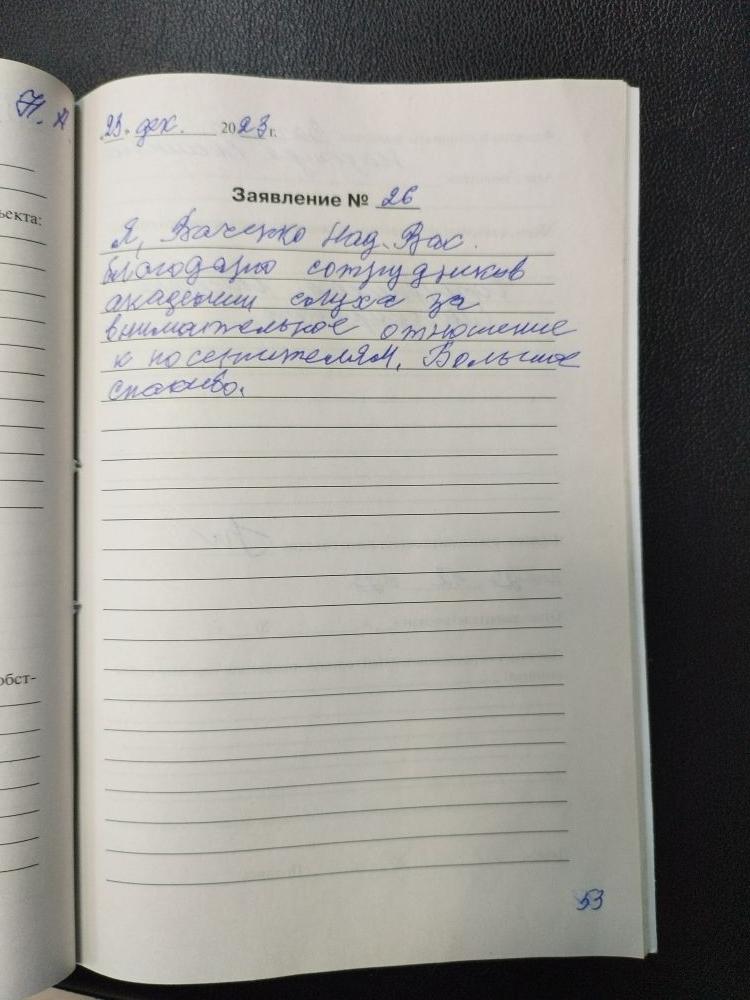 Н. А
ъекта:
обст-
23 дек. 2023 г.
Заявление № 26
Я, Ваченко Над. Вас.
благодарю сотрудников
академии слуха за
внимательное отношение
к посетителям. Большое
спасибо.
53